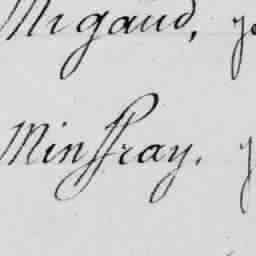 Migaud, y
Minffray. y